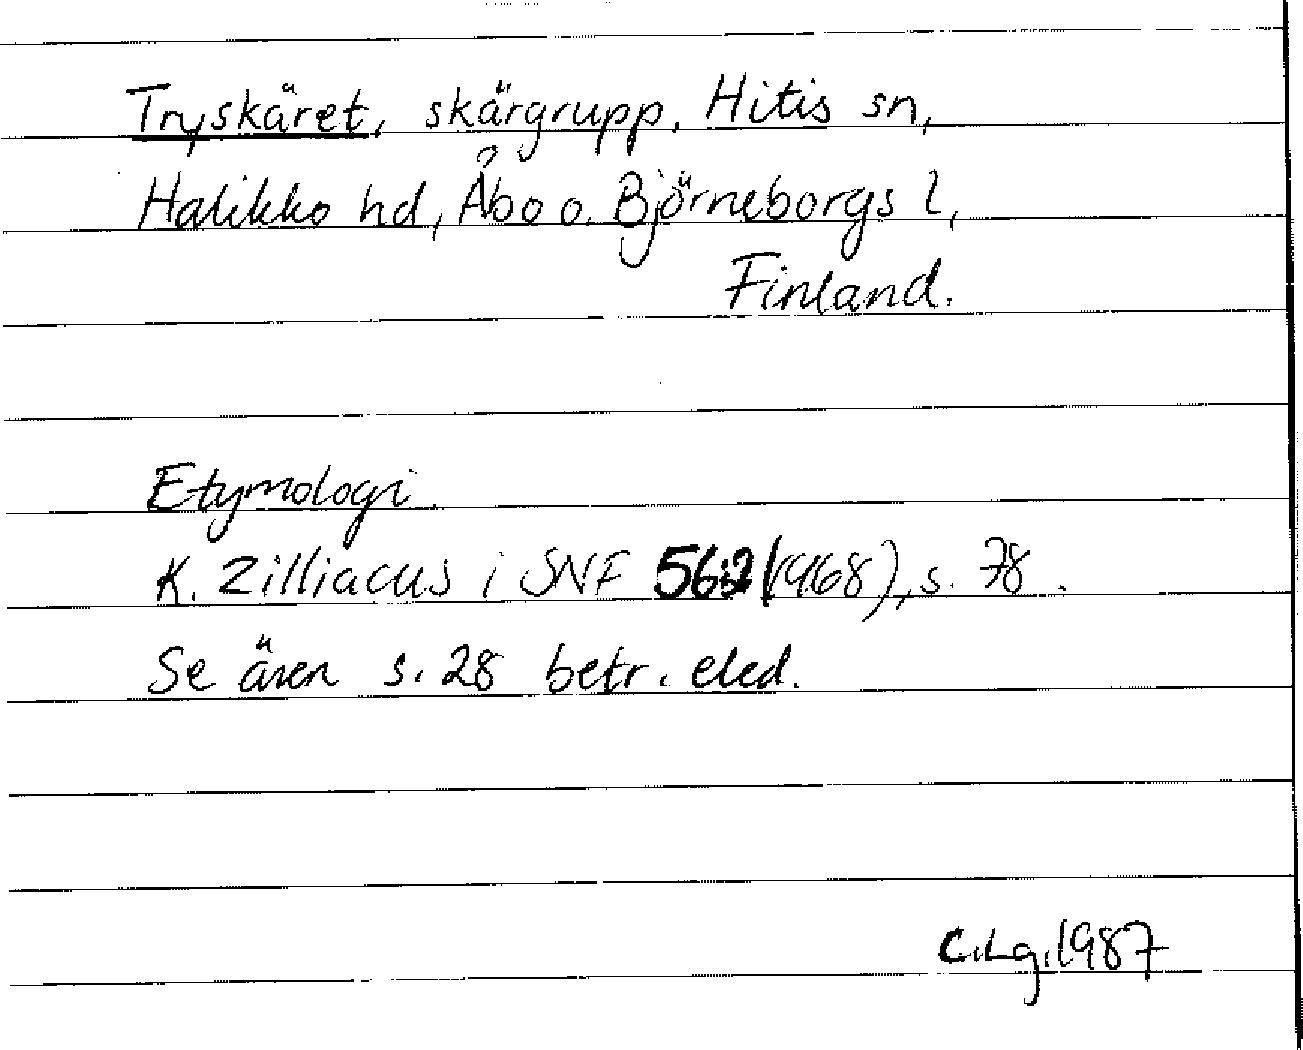 Tryskäret, skärgrupp, Hitis sn,
Halikko hd, Åbo o. Björneborgs l,
Finland.
Etymologi.
K. Zilliacus i SNF 56:2 (1968), s. 78.
Se även s. 28 betr. eled.
C.Lg.1987